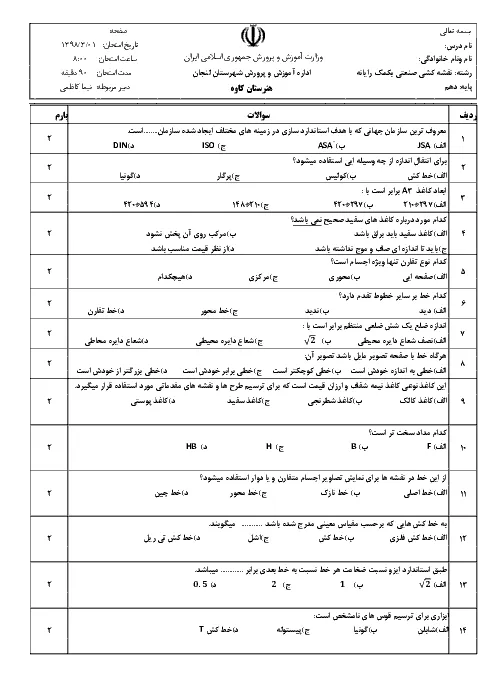 بسمه تعالی
نام درس:
نام ونام خانوادگی:
رشته: نقشه کشی صنعتی بکمک رایانه
پایه: دهم
وزارت آموزش و پرورش جمهوری اسلامی ایران
اداره آموزش و پرورش شهرستان لنجان
هنرستان کاوه
صفحه
تاریخ امتحان: ۱۳۹۸/۳/۰۱
ساعت امتحان: ۸:۰۰
مدت امتحان: ۹۰ دقیقه
دبیر مربوطه: نیما کاظمی
ردیف سوالات بارم
۱ معروف ترین سازمان جهانی که با هدف استاندارد سازی در زمینه های مختلف ایجاد شده سازمان......است. ۲
الف) JSA ب) ASA ج) ISO د)DIN
۲ برای انتقال اندازه از چه وسیله ایی استفاده میشود؟ ۲
الف)خط کش ب)کولیس ج)پرگار د)گونیا
۳ ابعاد کاغذ A۳ برابر است با : ۲
الف)۲۹۷*۲۱۰ ب)۲۹۷*۴۲۰ ج)۲۱۰*۱۴۸ د)۵۹۴*۴۲۰
۴ کدام مورد درباره کاغذ های سفید صحیح نمی باشد؟ ۲
الف)کاغذ سفید باید براق باشد ب)مرکب روی آن پخش نشود
ج)باید تا اندازه ای صاف و موج نداشته باشد د)از نظر قیمت مناسب باشد
۵ کدام نوع تقارن تنها ویژه اجسام است؟ ۲
الف)صفحه ایی ب)محوری ج)مرکزی د)هیچکدام
۶ کدام خط بر سایر خطوط تقدم دارد؟ ۲
الف) دید ب)ندید ج)خط محور د)خط تقارن
۷ اندازه ضلع یک شش ضلعی منتظم برابر است با : ۲
الف)نصف شعاع دایره محیطی ب) √2 ج)شعاع دایره محیطی د)شعاع دایره محاطی
۸ هرگاه خط با صفحه تصویر مایل باشد تصویر آن: ۲
الف)خطی به اندازه خودش است ب)خطی کوچکتر است ج)خطی برابر خودش است د)خطی بزرگتر از خودش است
۹ این کاغذ نوعی کاغذ نیمه شفاف و ارزان قیمت است که برای ترسیم طرح ها و نقشه های مقدماتی مورد استفاده قرار میگیرد. ۲
الف)کاغذ کالک ب)کاغذ شطرنجی ج)کاغذ سفید د)کاغذ پوستی
۱۰ کدام مداد سخت تر است؟ ۲
الف) F ب) B ج) H د) HB
۱۱ از این خط در نقشه ها برای نمایش تصاویر اجسام متقارن و یا دوار استفاده میشود؟ ۲
الف)خط اصلی ب) خط نازک ج)خط محور د)خط چین
۱۲ به خط کش هایی که بر حسب مقیاس معینی مدرج شده باشد .......... میگویند. ۲
الف)خط کش فلزی ب)خط کش ج)اشل د)خط کش تی ریل
۱۳ طبق استاندارد ایزو نسبت ضخامت هر خط نسبت به خط بعدی برابر .......... میباشد. ۲
الف) √2 ب) 1 ج) 2 د) 0.5
۱۴ ابزاری برای ترسیم قوس های نامشخص است: ۲
الف)شابلن ب)گونیا ج)پیستوله د)خط کش T